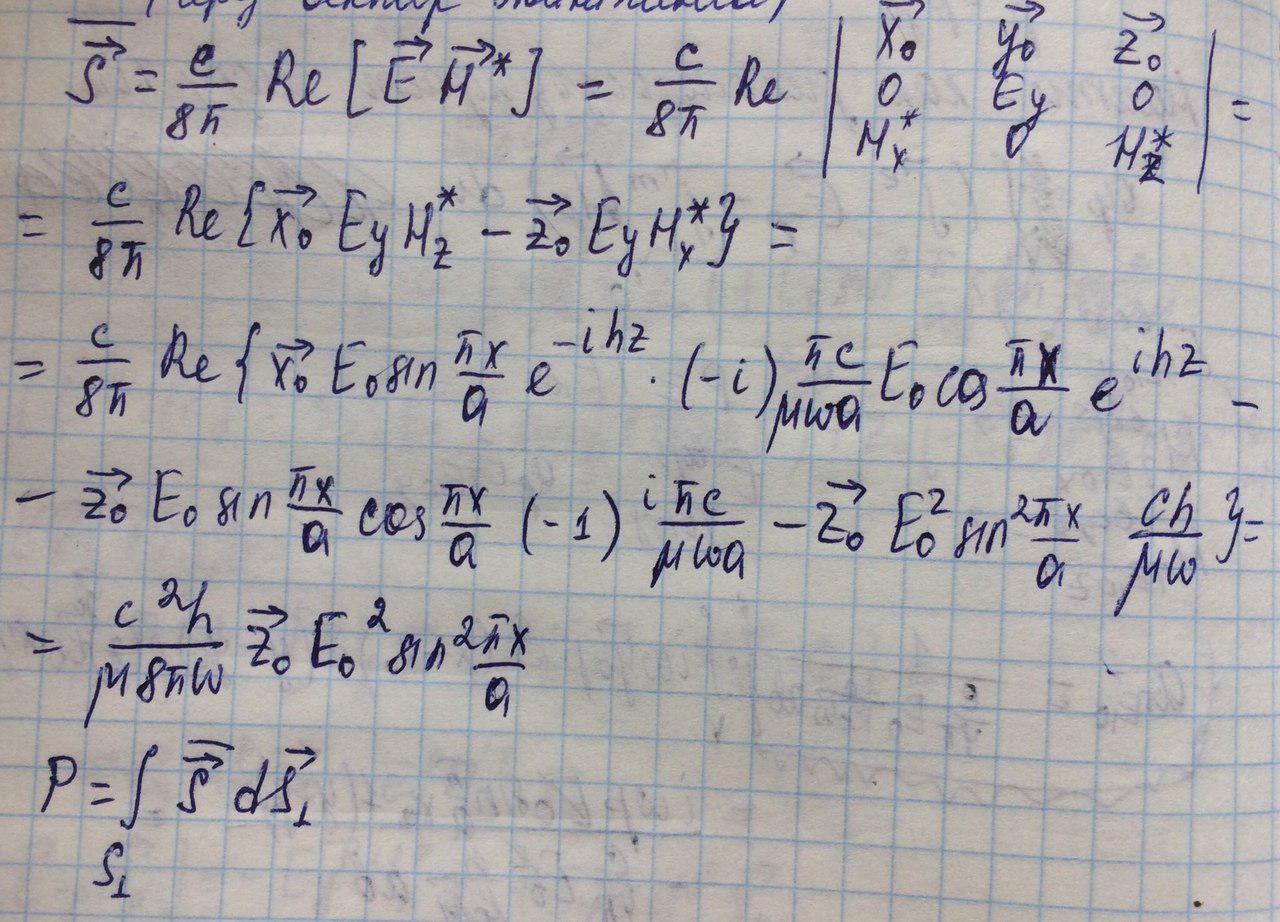 (
S⃗ = c/8π Re [E⃗ H⃗*] = c/8π Re | x⃗₀ y⃗₀ z⃗₀ ; 0 Ey 0 ; Hx* 0 Hz* | =
= c/8π Re {x⃗₀ Ey Hz* − z⃗₀ Ey Hx*} =
= c/8π Re {x⃗₀ E₀ sin πx/a e^{-ihz} · (-i) πc/μωa E₀ cos πx/a e^{ihz} −
− z⃗₀ E₀ sin πx/a cos πx/a (-1) iπc/μωa − z⃗₀ E₀² sin² πx/a ch/μω } =
= c²h/μ8πω z⃗₀ E₀² sin² πx/a
P = ∫ S⃗ dS⃗⊥
S⊥